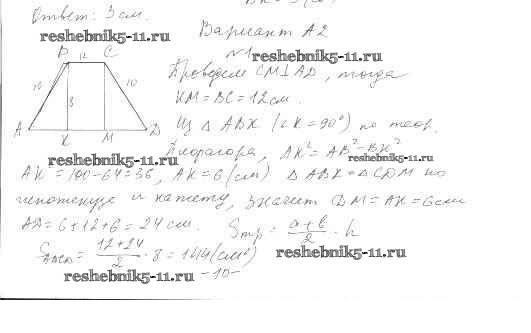 Ответ: 3 см.
reshebnik5-11.ru
Вариант А2
№1
reshebnik5-11.ru
B 12 C
Проведем CM⊥AD, тогда
10 10
KM=BC=12см.
8
Из △ABK (∠K=90°) по теор.
A K M D
Пифагора, AK²=AB²-BK²
reshebnik5-11.ru
reshebnik5-11.ru
AK²=100-64=36, AK=6(см) △ABK=△CDM по
гипотенузе и катету, значит DM=AK=6см
AD=6+12+6=24см. Sтр=(a+b)/2·h
S_ABCD=(12+24)/2·8=144(см²)
reshebnik5-11.ru
reshebnik5-11.ru
-10-